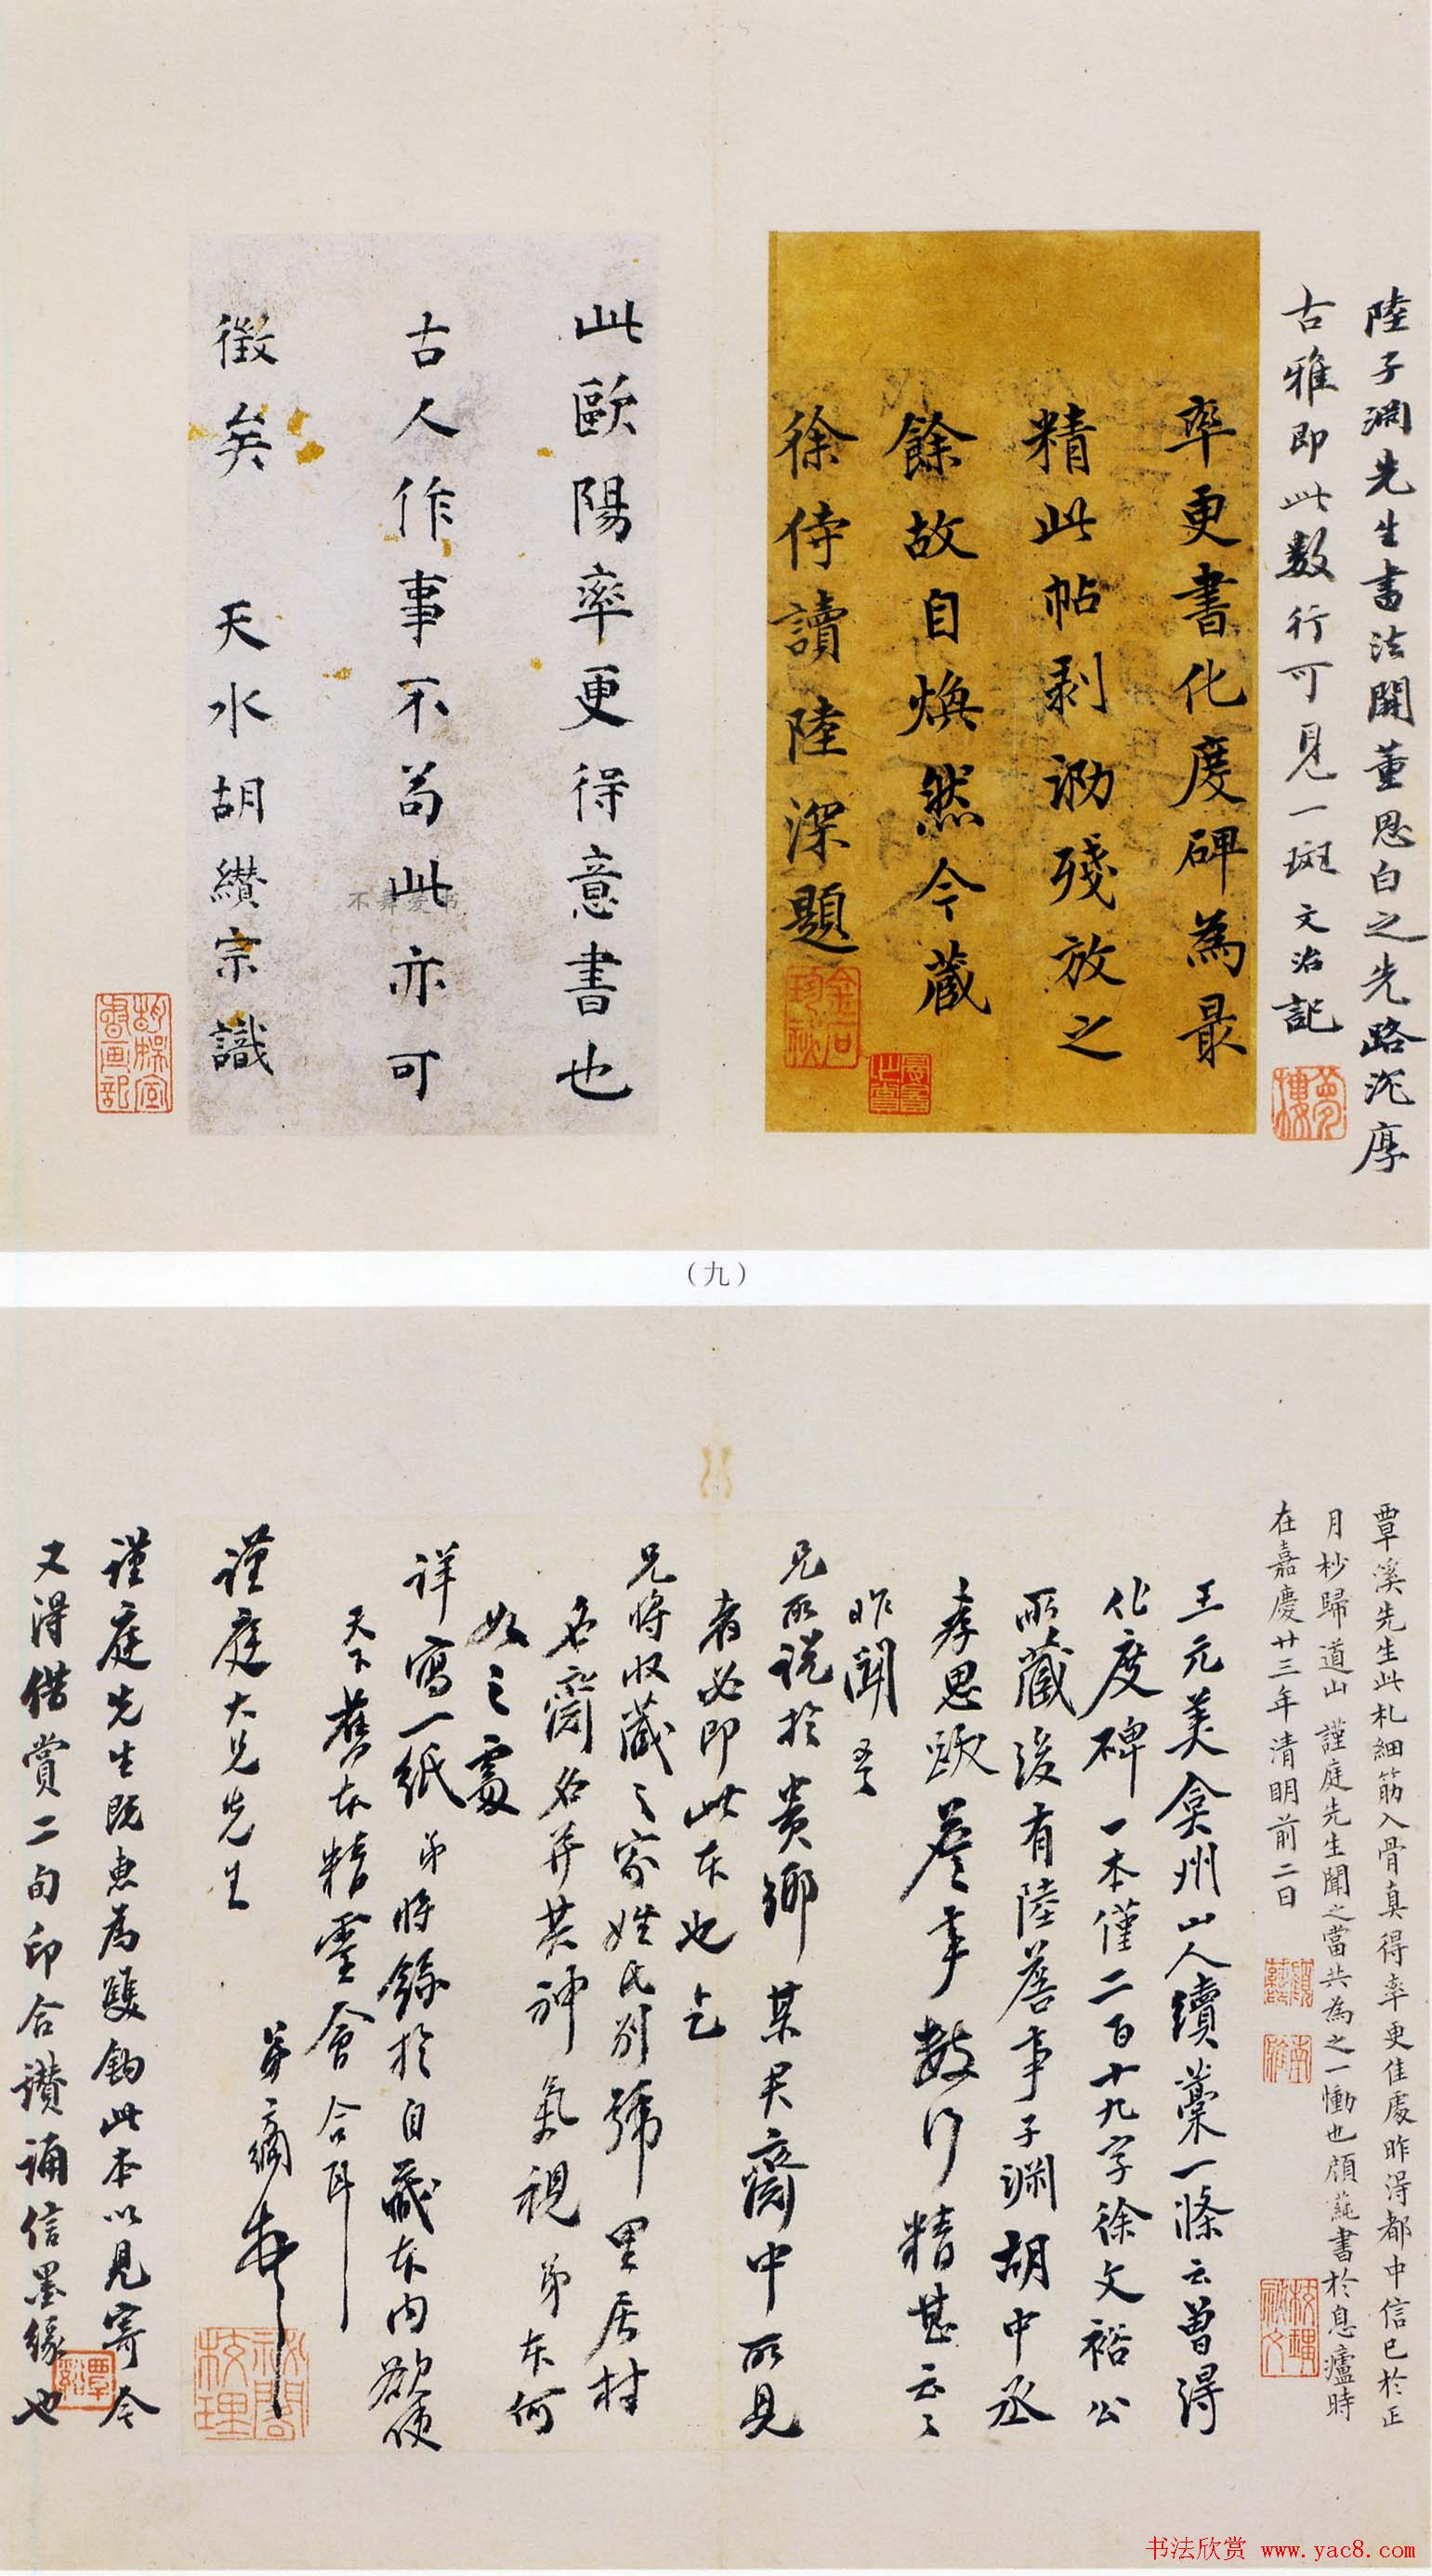 陸子淵先生書法開董思白之先路沉厚
古雅即此數行可見一斑 文治記
夢樓
率更書化度碑為最
精此帖剥泐殘放之
餘故自煥然今藏
徐侍讀陸深題
此歐陽率更得意書也
古人作事不苟此亦可
徵矣 天水胡纘宗識
不舞
（九）
覃溪先生此札細筋入骨真得率更佳處昨得都中信已於正
月杪歸道山 謹庭先生聞之當共為之一慟也顧蒓書於息廬時
在嘉慶廿三年清明前二日
王元美弇州山人續藁一條云曾得
化度碑一本僅二百十九字徐文裕公
所藏後有陸詹事子淵胡中丞
孝思跋詹事數行精甚云云
昨聞
兄所說於貴鄉某君齋中所見
者必即此本也乞
兄將收藏之家姓氏別號里居村
名齋名并其神氣視弟本何
如之處
詳寫一紙弟將錄於自藏本內欲使
天下舊本精靈會合耳
謹庭大兄先生
弟綱頓首
秘閣校理
謹庭先生既惠為雙鉤此本以見寄今
又得借賞二旬印合讚誦信墨緣也
覃谿
书法欣赏 www.yac8.com